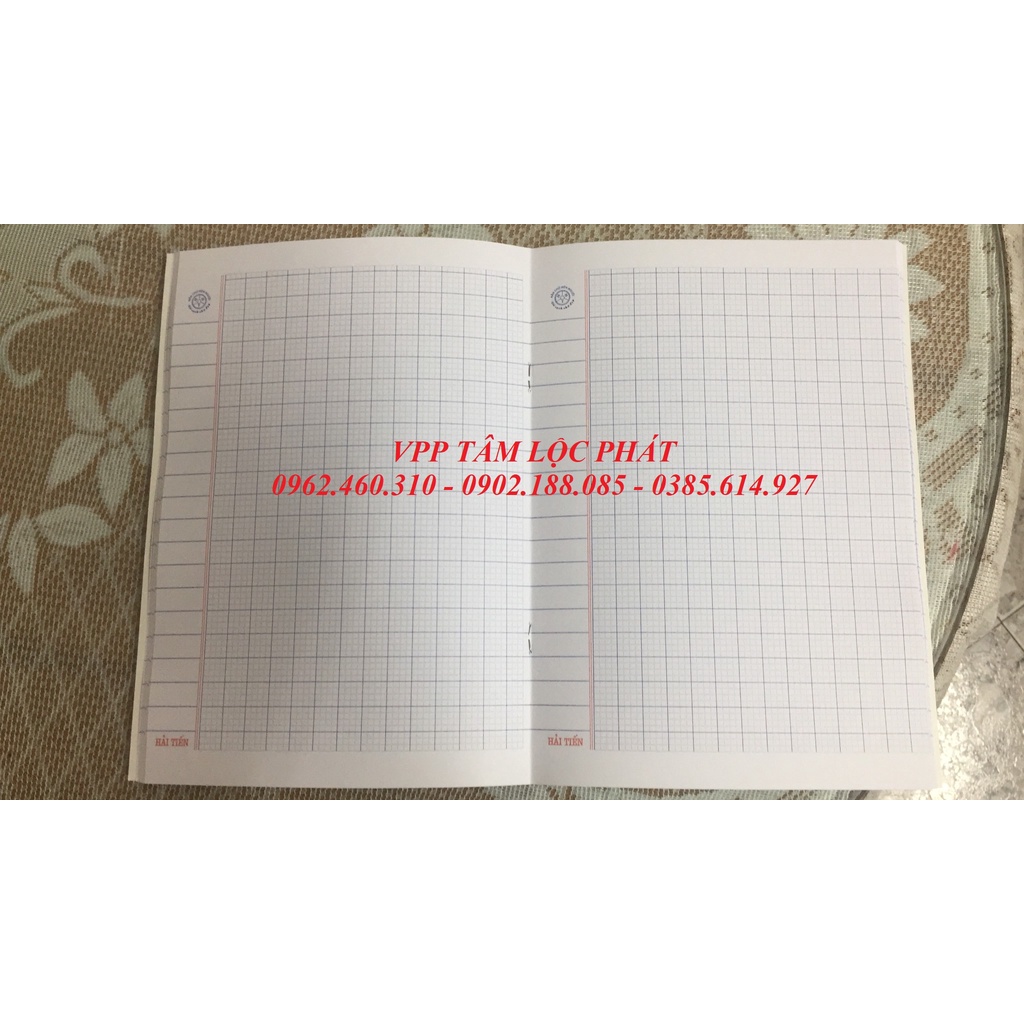 VPP TÂM LỘC PHÁT
0962.460.310 - 0902.188.085 - 0385.614.927
HẢI TIẾN
HẢI TIẾN